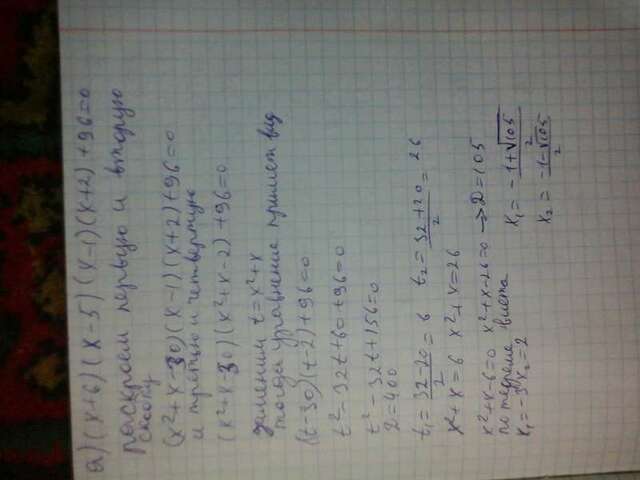 а) (x+6)(x-5)(x-1)(x+2)+96=0
раскроем первую и вторую
скобку
(x²+x-30)(x-1)(x+2)+96=0
и третью и четвертую
(x²+x-30)(x²+x-2)+96=0
заменим t=x²+x
тогда уравнение примет вид
(t-30)(t-2)+96=0
t²-32t+60+96=0
t²-32t+156=0
D=400
t₁=(32-20)/2=6 t₂=(32+20)/2=26
x²+x=6 x²+x=26
x²+x-6=0 x²+x-26=0 → D=105
по теореме виета x₁=(-1+√105)/2
x₁=-3 x₂=2 x₂=(-1-√105)/2